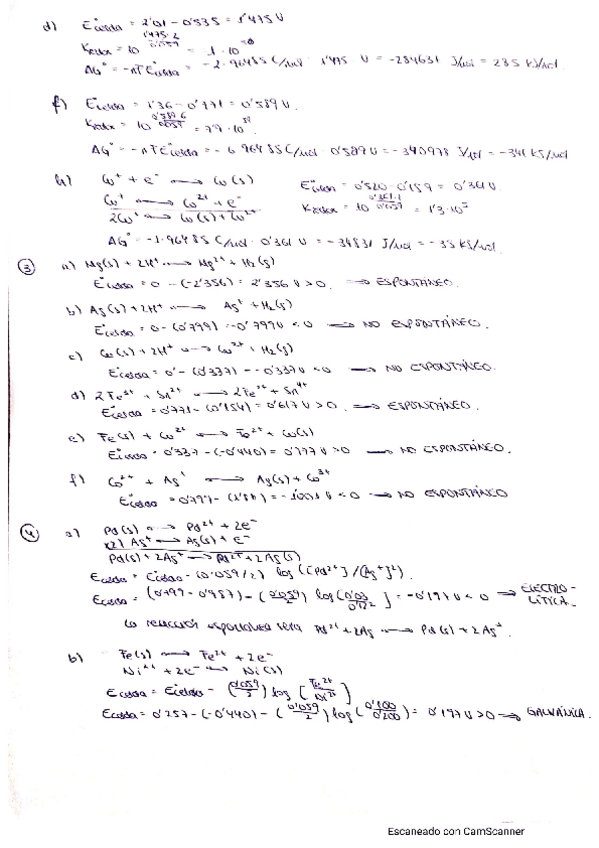 d) E°celda = 2'01 - 0'535 = 1'475 V
Kredox = 10^(1'475·2/0'059) = 1·10
ΔG° = -nFE°celda = -2·96485 C/mol · 1'475 V = -284631 J/mol = 285 KJ/mol.
f) E°celda = 1'36 - 0'771 = 0'589 V.
Kredox = 10^(0'589·6/0'059) = 7'9·10
ΔG° = -nFE°celda = -6·96485 C/mol · 0'589 V = -340978 J/mol = -341 KJ/mol
h) Cu⁺ + e⁻ → Cu(s) E°celda = 0'520 - 0'159 = 0'361 V.
Cu⁺ → Cu²⁺ + e⁻ Kredox = 10^(0'361·1/0'059) = 1'3·10
2Cu⁺ → Cu(s) + Cu²⁺
ΔG° = -1·96485 C/mol · 0'361 V = -34831 J/mol = -35 KJ/mol.
③ a) Mg(s) + 2H⁺ → Mg²⁺ + H₂(g)
E°celda = 0 - (-2'356) = 2'356 V > 0. → ESPONTÁNEO.
b) Ag(s) + 2H⁺ → Ag⁺ + H₂(g)
E°celda = 0 - (0'799) = -0'799 V < 0 → NO ESPONTÁNEO.
c) Cu(s) + 2H⁺ → Cu²⁺ + H₂(g)
E°celda = 0 - (0'337) = -0'337 V < 0 → NO ESPONTÁNEO.
d) 2Fe³⁺ + Sn²⁺ → 2Fe²⁺ + Sn⁴⁺
E°celda = 0'771 - (0'154) = 0'617 V > 0. → ESPONTÁNEO.
e) Fe(s) + Cu²⁺ → Fe²⁺ + Cu(s)
E°celda = 0'337 - (-0'440) = 0'777 V > 0 → NO ESPONTÁNEO.
f) Co²⁺ + Ag⁺ → Ag(s) + Co³⁺
E°celda = 0'799 - < 0 → NO ESPONTÁNEO
④ a) Pd(s) → Pd²⁺ + 2e⁻
x2) Ag⁺ → Ag(s) + e⁻
Pd(s) + 2Ag⁺ → Pd²⁺ + 2Ag(s)
Ecelda = E°celda - (0'059/2) log([Pd²⁺]/[Ag⁺]²).
Ecelda = (0'799 - 0'987) - (0'059/2) log = -0'191 V < 0 → ELECTRO-
LÍTICA.
La reacción espontánea será Pd²⁺ + 2Ag → Pd(s) + 2Ag⁺.
b) Fe(s) → Fe²⁺ + 2e⁻
Ni²⁺ + 2e⁻ → Ni(s)
Ecelda = E°celda - (0'059/2) log [Fe²⁺/Ni²⁺]
Ecelda = 0'257 - (-0'440) - (0'059/2) log (0'100/0'200) = 0'197 V > 0 → GALVÁNICA.
Escaneado con CamScanner